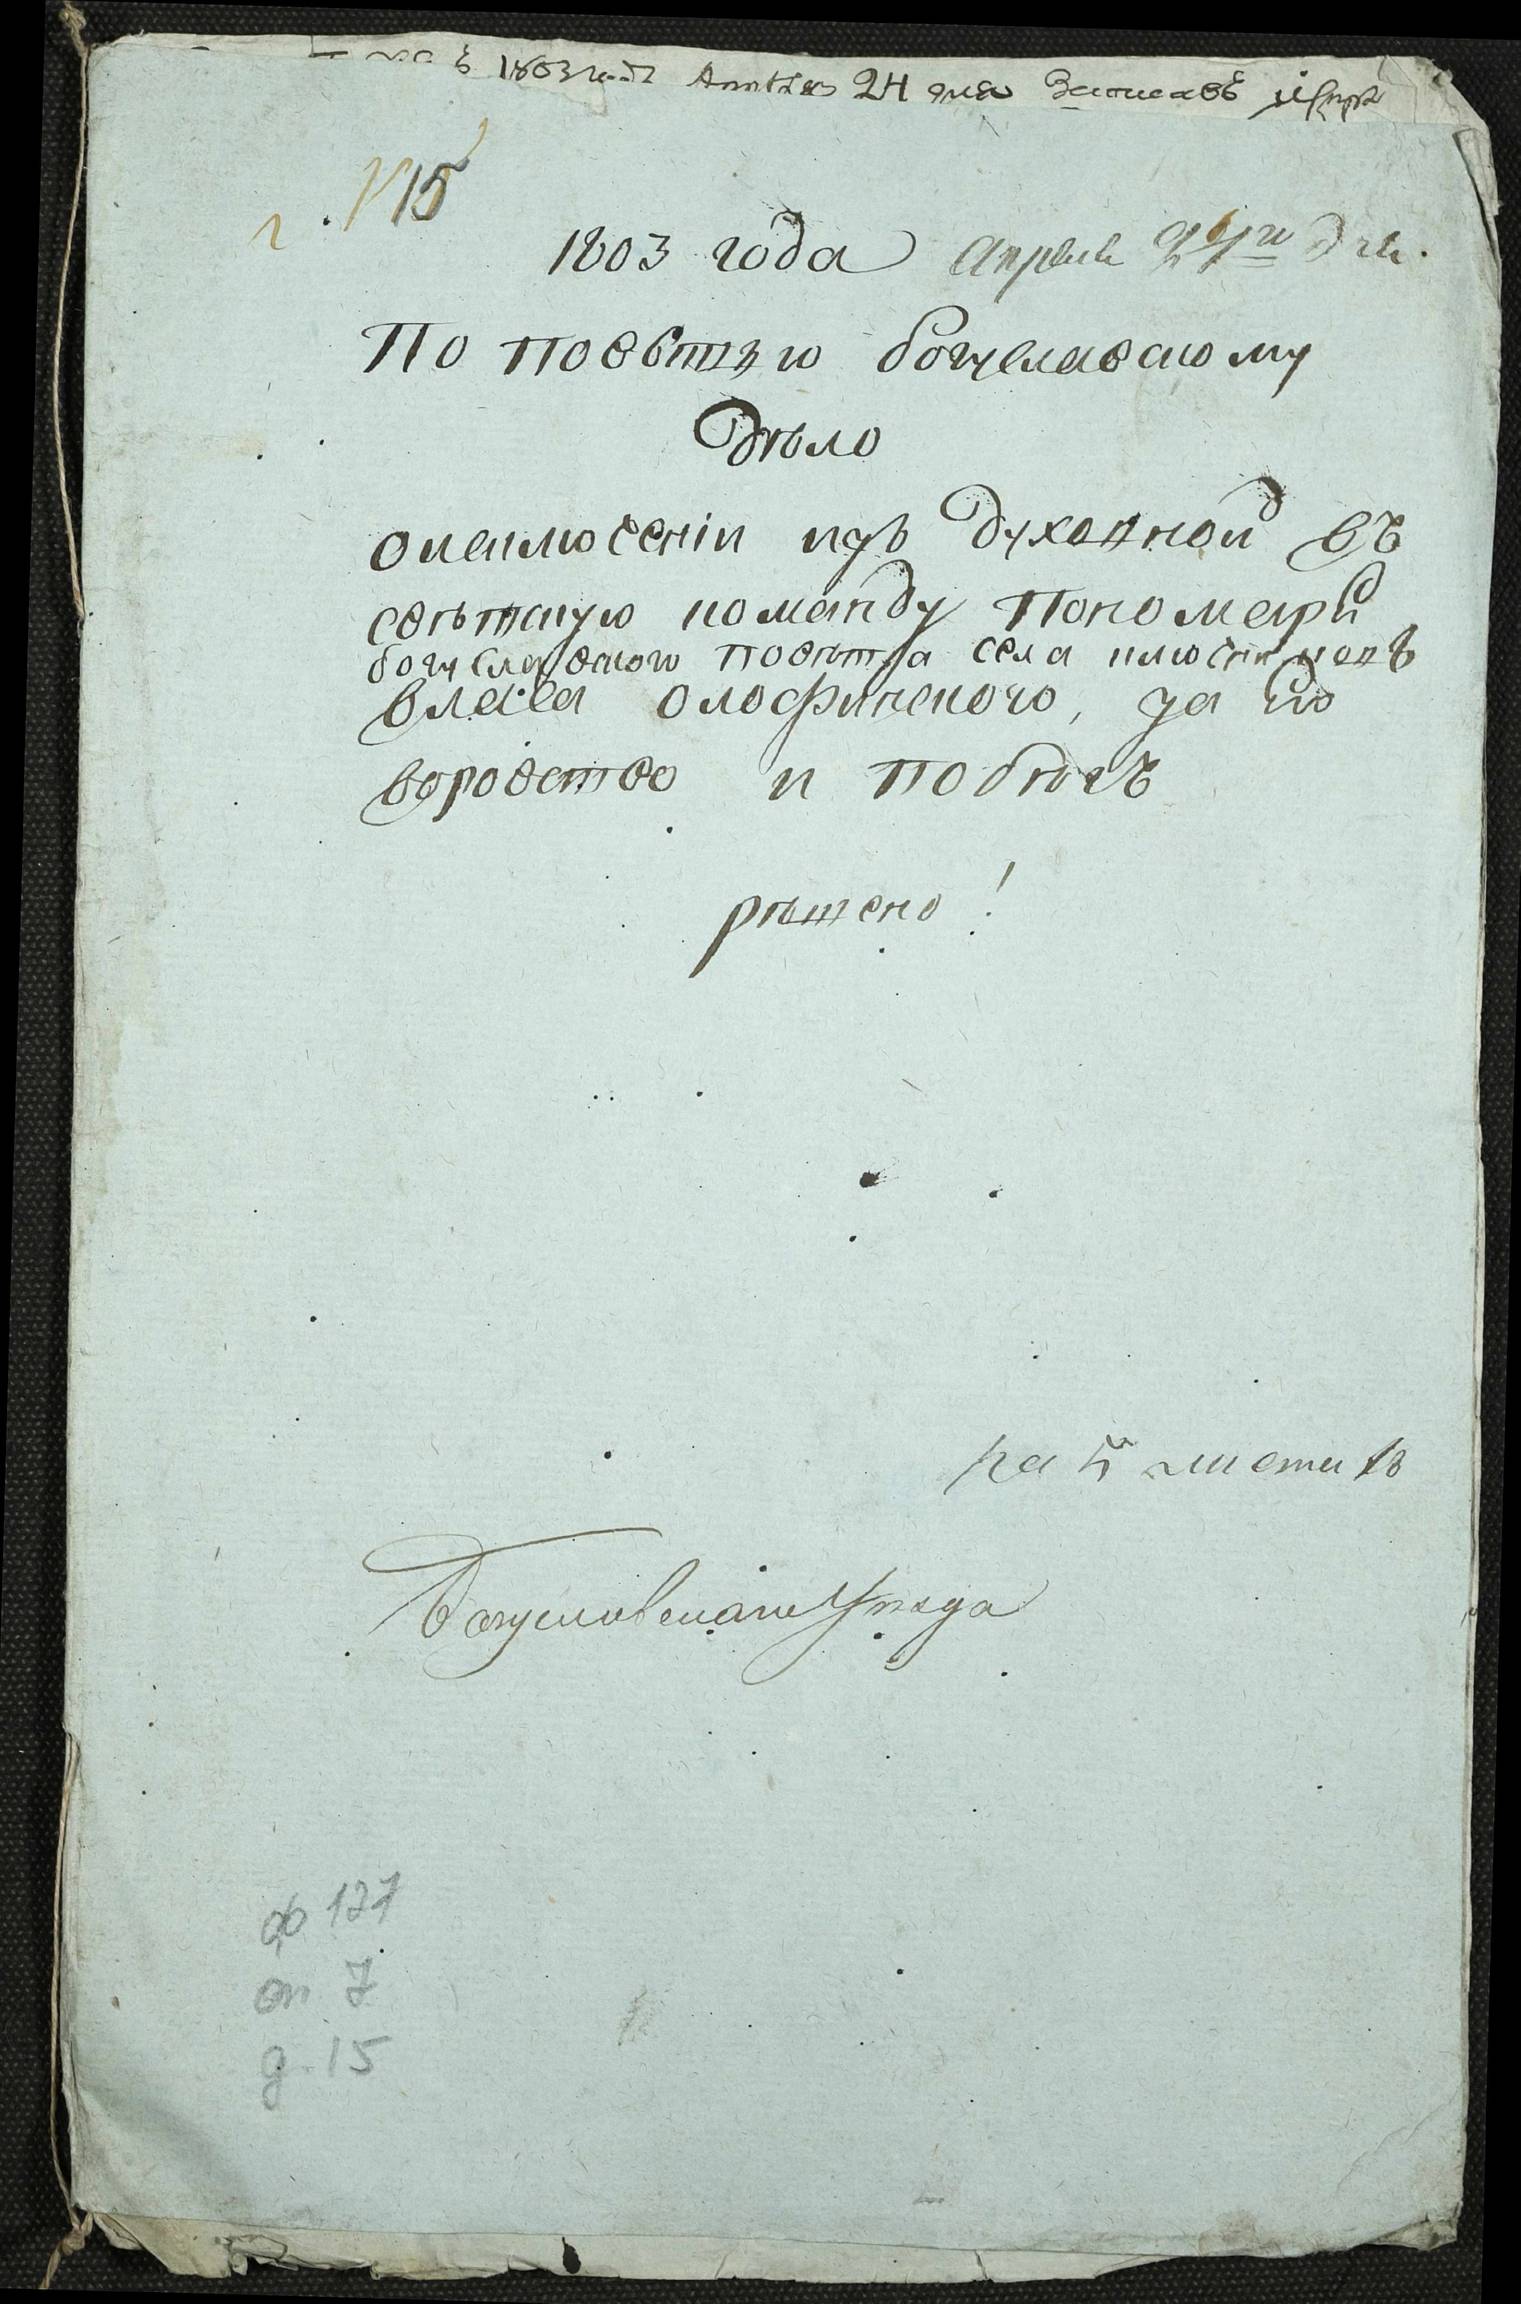 1803 года Апреля 24 дня
№ 15
1803 года апреля 24го дня.
По Повѣту Богуславскому
Дѣло
о исключеніи изъ духовной въ
свѣтскую команду Пономаря
богуславскаго повѣта села
власа олофинского, за его
воровство и побѣгъ
рѣшено!
на 5 листахъ
Богуславскаго Уезда
ф 127
оп 7
д. 15